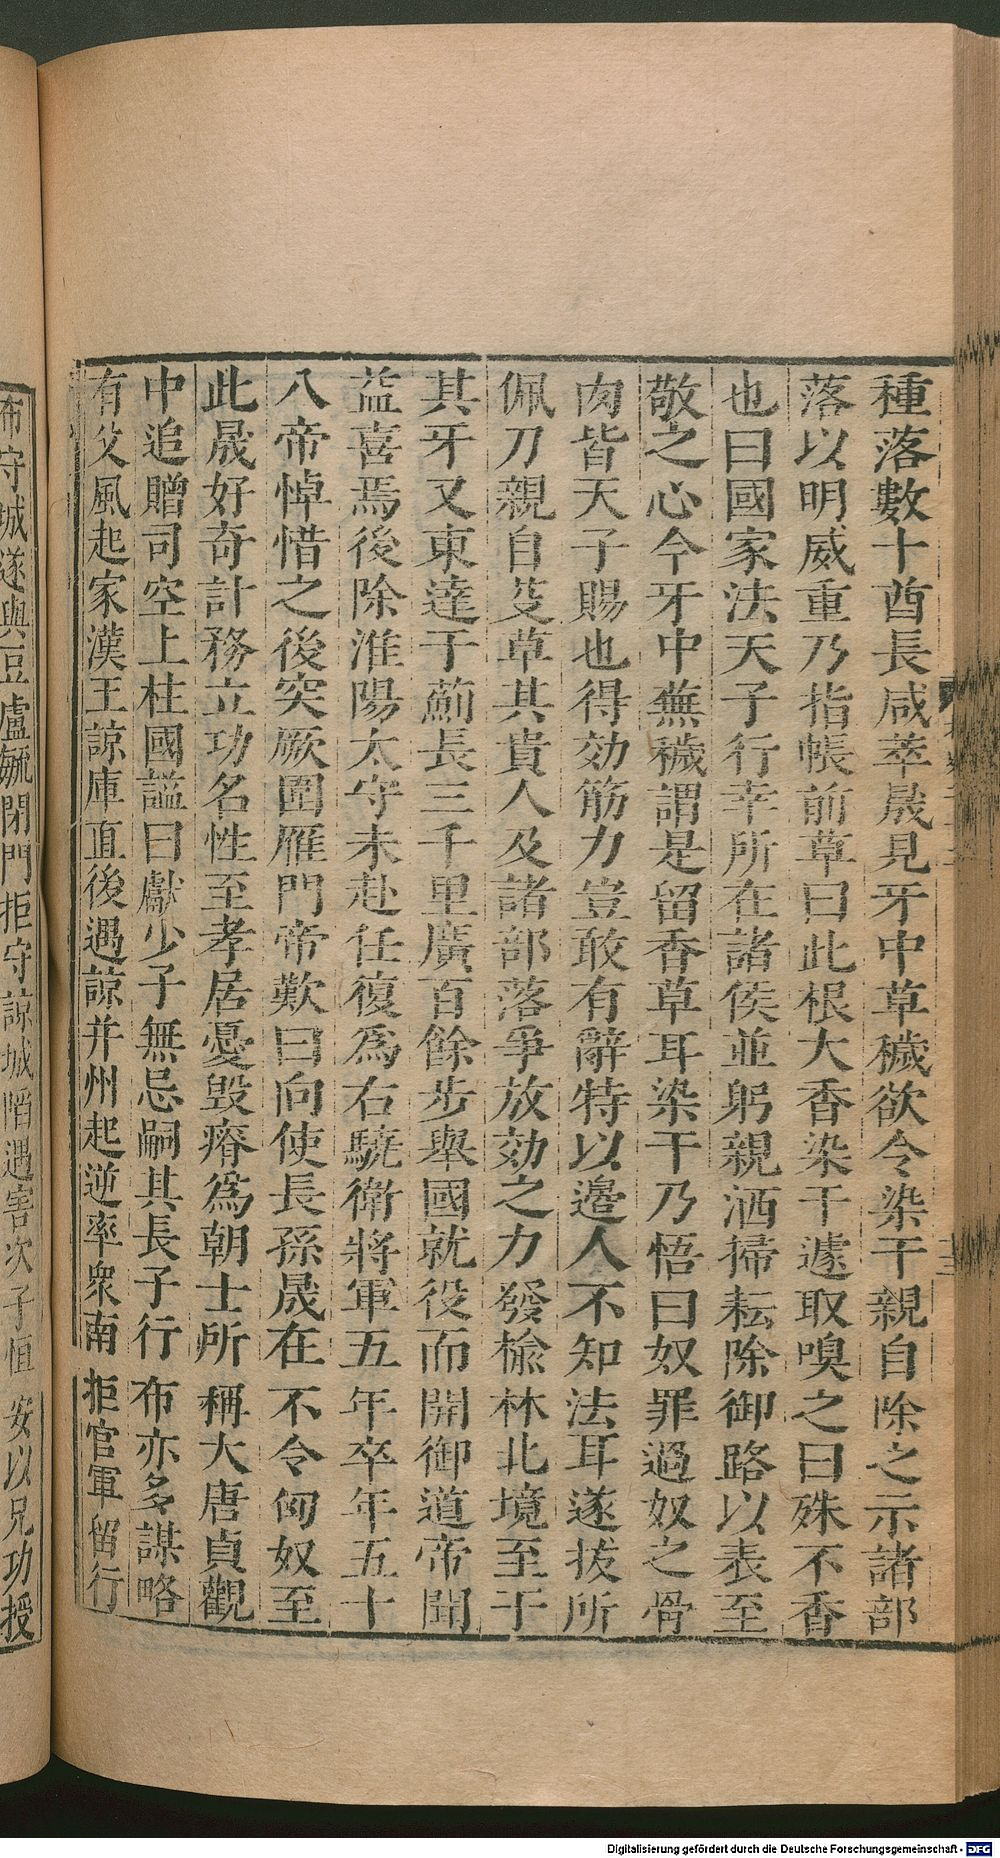 種落數十酋長咸萃晟見牙中草穢欲令染干親自除之示諸部
落以明威重乃指帳前草曰此根大香染干遽取嗅之曰殊不香
也曰國家法天子行幸所在諸侯並躬親洒掃耘除御路以表至
敬之心今牙中蕪穢謂是留香草耳染干乃悟曰奴罪過奴之骨
肉皆天子賜也得効筋力豈敢有辭特以邊人不知法耳遂拔所
佩刀親自芟草其貴人及諸部落爭放効之力發榆林北境至于
其牙又東達于薊長三千里廣百餘步舉國就役而開御道帝聞
益喜焉後除淮陽太守未赴任復爲右驍衛將軍五年卒年五十
八帝悼惜之後突厥圍雁門帝歎曰向使長孫晟在不令匈奴至
此晟好奇計務立功名性至孝居憂毀瘠爲朝士所稱大唐貞觀
中追贈司空上柱國諡曰獻少子無忌嗣其長子行布亦多謀略
有父風起家漢王諒庫直後遇諒并州起逆率衆南拒官軍留行
布守城遂與豆盧毓閉門拒守諒城陷遇害次子恒安以兄功授
Digitalisierung gefördert durch die Deutsche Forschungsgemeinschaft - DFG